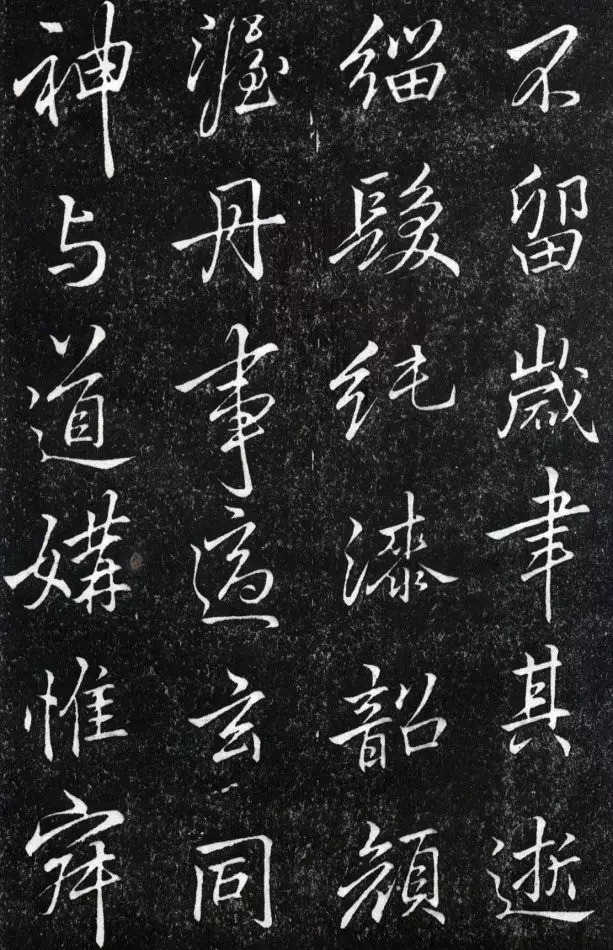 不留歳聿其逝
緇髮純漆韶顔
渥丹事適玄同
神与道媾惟